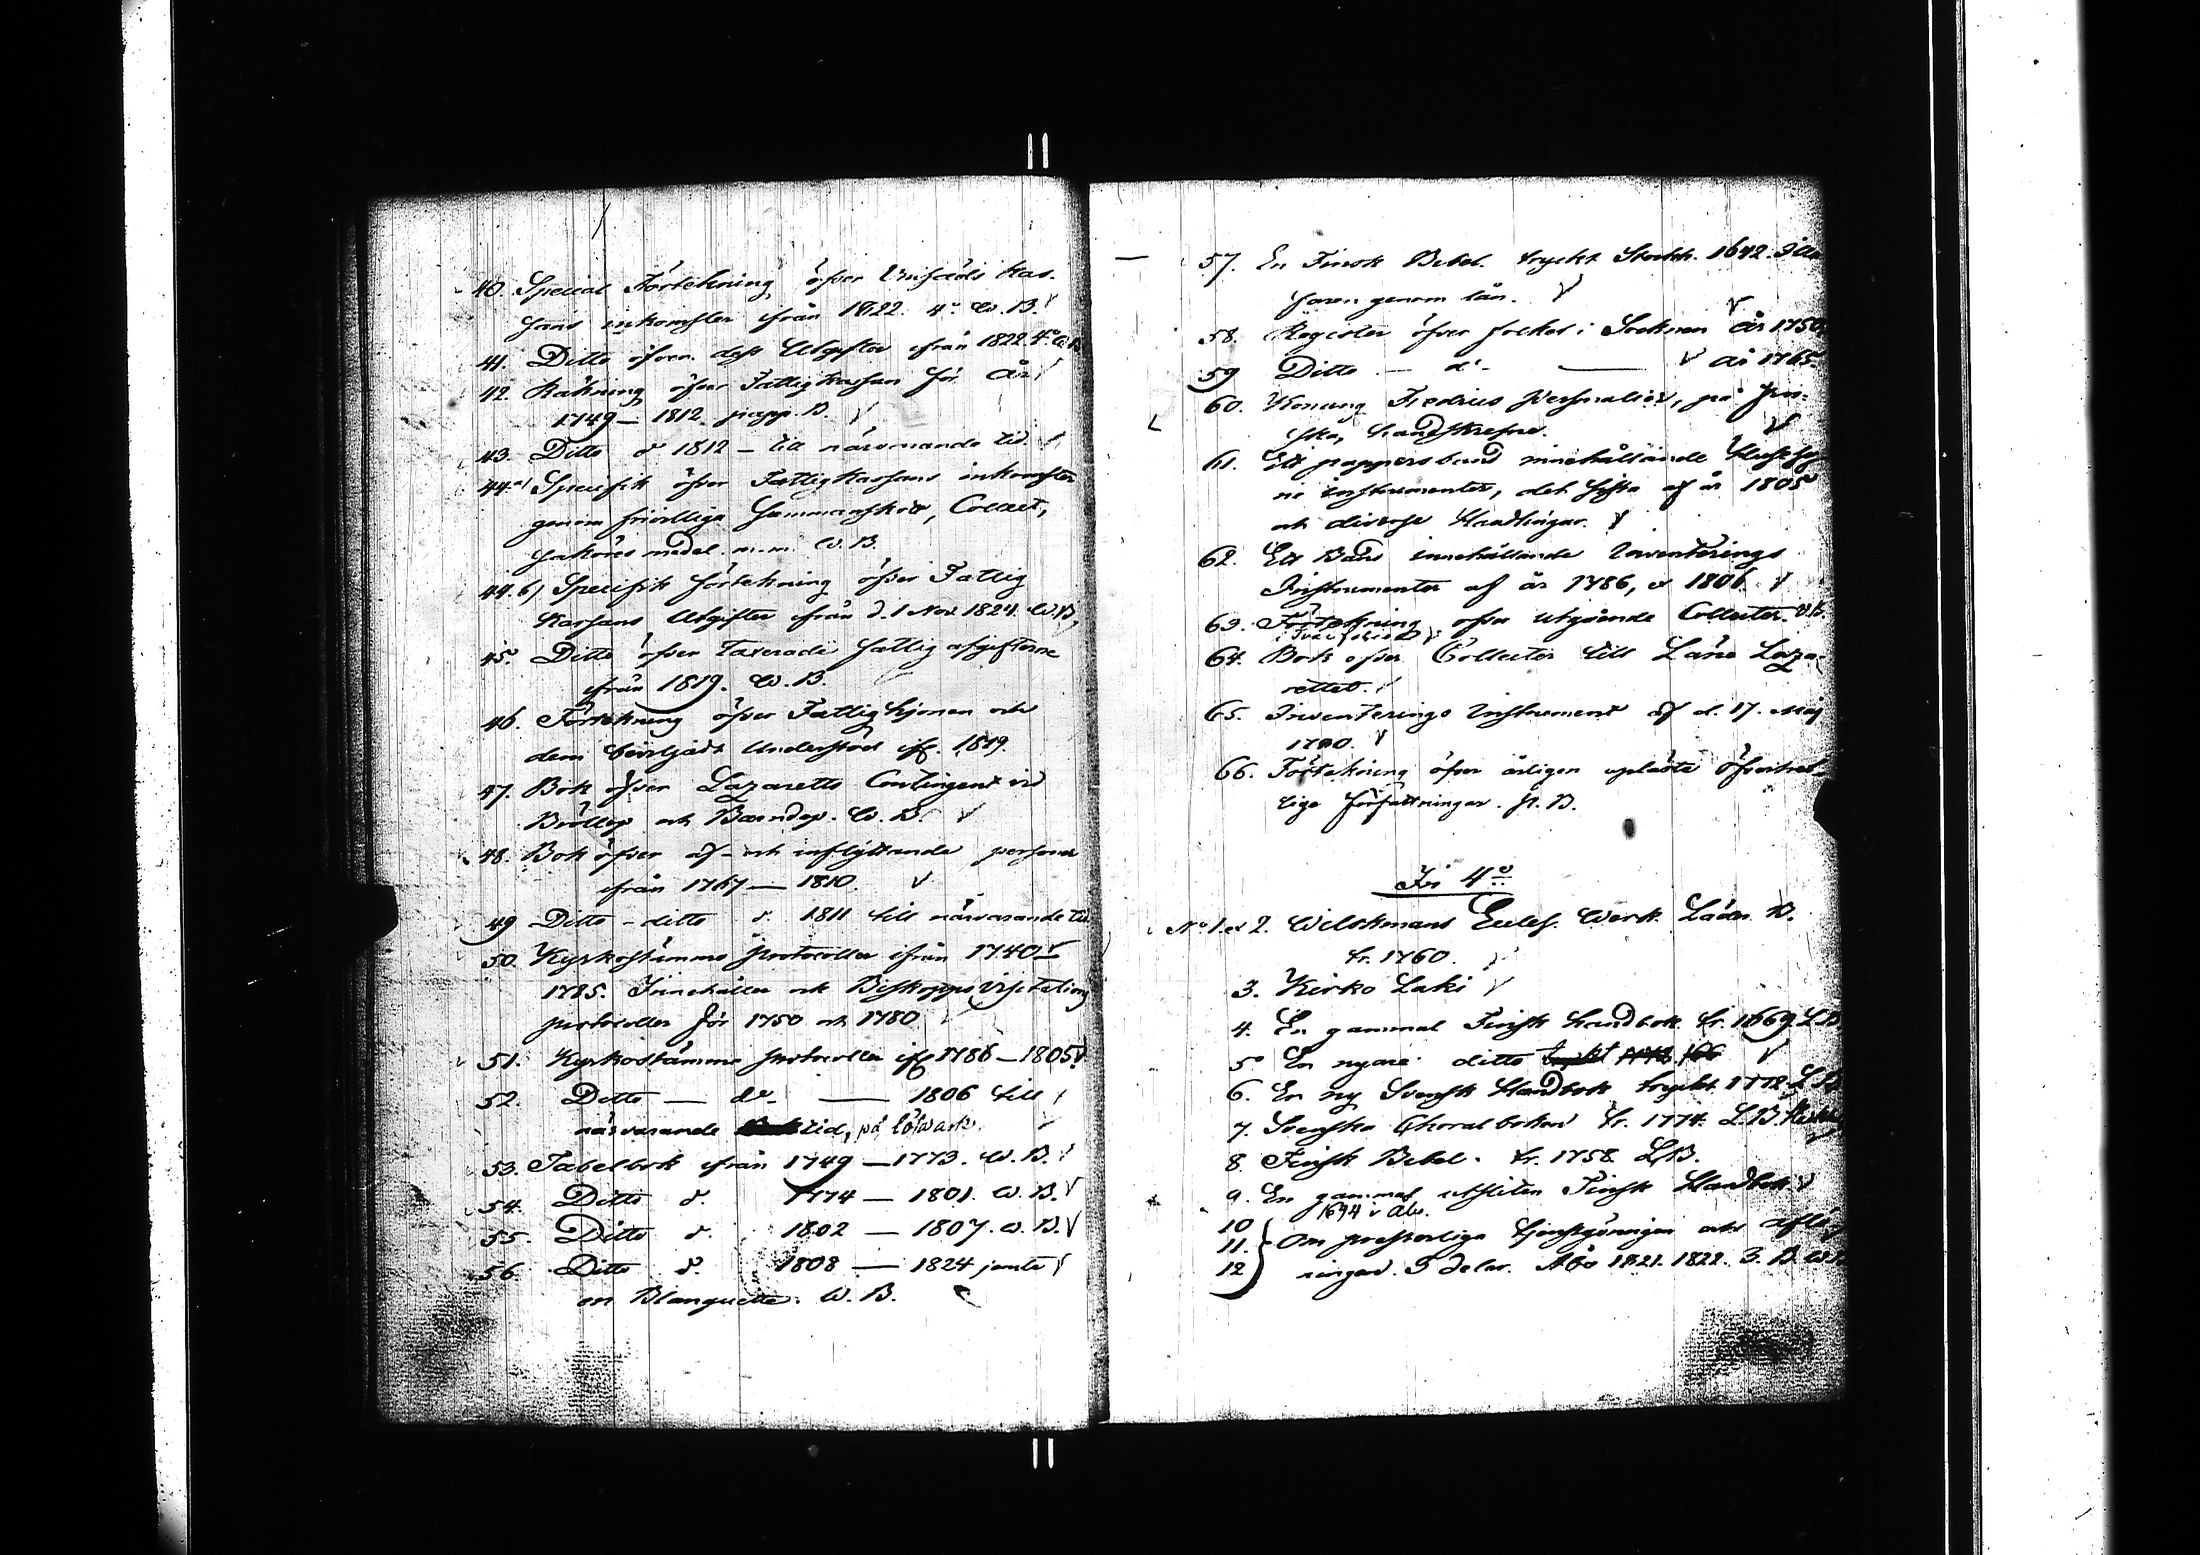 40. Special Förtekning öfver Enskeds kas-
sans inkomster ifrån 1822. 4:o W. B.
41. Ditto öfver dess Utgifter ifrån 1822. 4:o W. B.
42. Räkning öfver Fattigkassan för År
1749 — 1812. papp. B.
43. Ditto d:o 1812 — till närvarande tid.
44. a) Specifik öfver Fattigkassans inkomster
genom friwilliga sammanskott, Collect,
sakören medel. m. m. W. B.
44. b) Specifik förtekning öfver Fattig
Kassans Utgifter ifrån d. 1 Nov. 1824. W. B.
45. Ditto öfver Taxerade fattig afgifterne
ifrån 1819. W. B.
46. Förtekning öfver Fattighjonen och
dem beviljadt Understöd if. 1819.
47. Bok öfver Lazaretts Contingent vid
Bröllop och Barndop. W. B.
48. Bok öfver af- och inflyttande personer
ifrån 1767 — 1810.
49 Ditto - ditto d:o 1811 till närvarande tid.
50. Kyrkostämmo protocoller ifrån 1740 —
1785. Innehåller ock Biskopps Visitations
protocoller för 1750 och 1780
51. Kyrkostämmo protocoller if. 1786 — 1805.
52. Ditto — d:o — 1806 till
närvarande tid, på lötwark
53. Tabelbok ifrån 1749 — 1773. W. B.
54. Ditto d:o 1774 — 1801. W. B.
55. Ditto d:o 1802 — 1807. W. B.
56. Ditto d:o 1808 — 1824 jemte
en Blanquette. W. B.
57. En Finsk Bibel. tryckt Stockh. 1642.
faren genom lån.
58. Register öfver folket i Socknen År 1750
59 Ditto — d:o — år 1765.
60. Konung Fredrics personalier, på Fin-
ska, handskrefne.
61. Ett pappersband innehållande
ns instrumenter, det sista af år 1805
och diverse Handlingar.
62. Ett Band innehållande Inventerings
Instrumenter af år 1786, et 1806.
63. Förtekning öfver utgående Collecter. W. B.
64. Bok öfver Collecter till Läns Laza-
rettet.
65. Inventerings Instrument af d. 17. Maj
66. Förtekning öfver årligen uplästa öfverhet-
lige författningar. p. B.
In 4:o
No 1. et 2. Wilskmans Eccles. Werk. Läder B.
tr. 1760.
3. Kirko Laki
4. En gammal Finsk handbok tr. 1669. L B
5 En nyare ditto
6. En ny Svensk Handbok tryckt 1772. L B
7. Svenska Choralboken tr. 1774. L. B.
8. Finsk Bibel. tr. 1758 L. B.
9. En gammal utsliten Finsk Handbok
1694 i Abo.
10
11. Om presterliga tjenstgöringen och aflö
12 ningar. 3 delar. Åbo 1821. 1822. 3. B. W. B